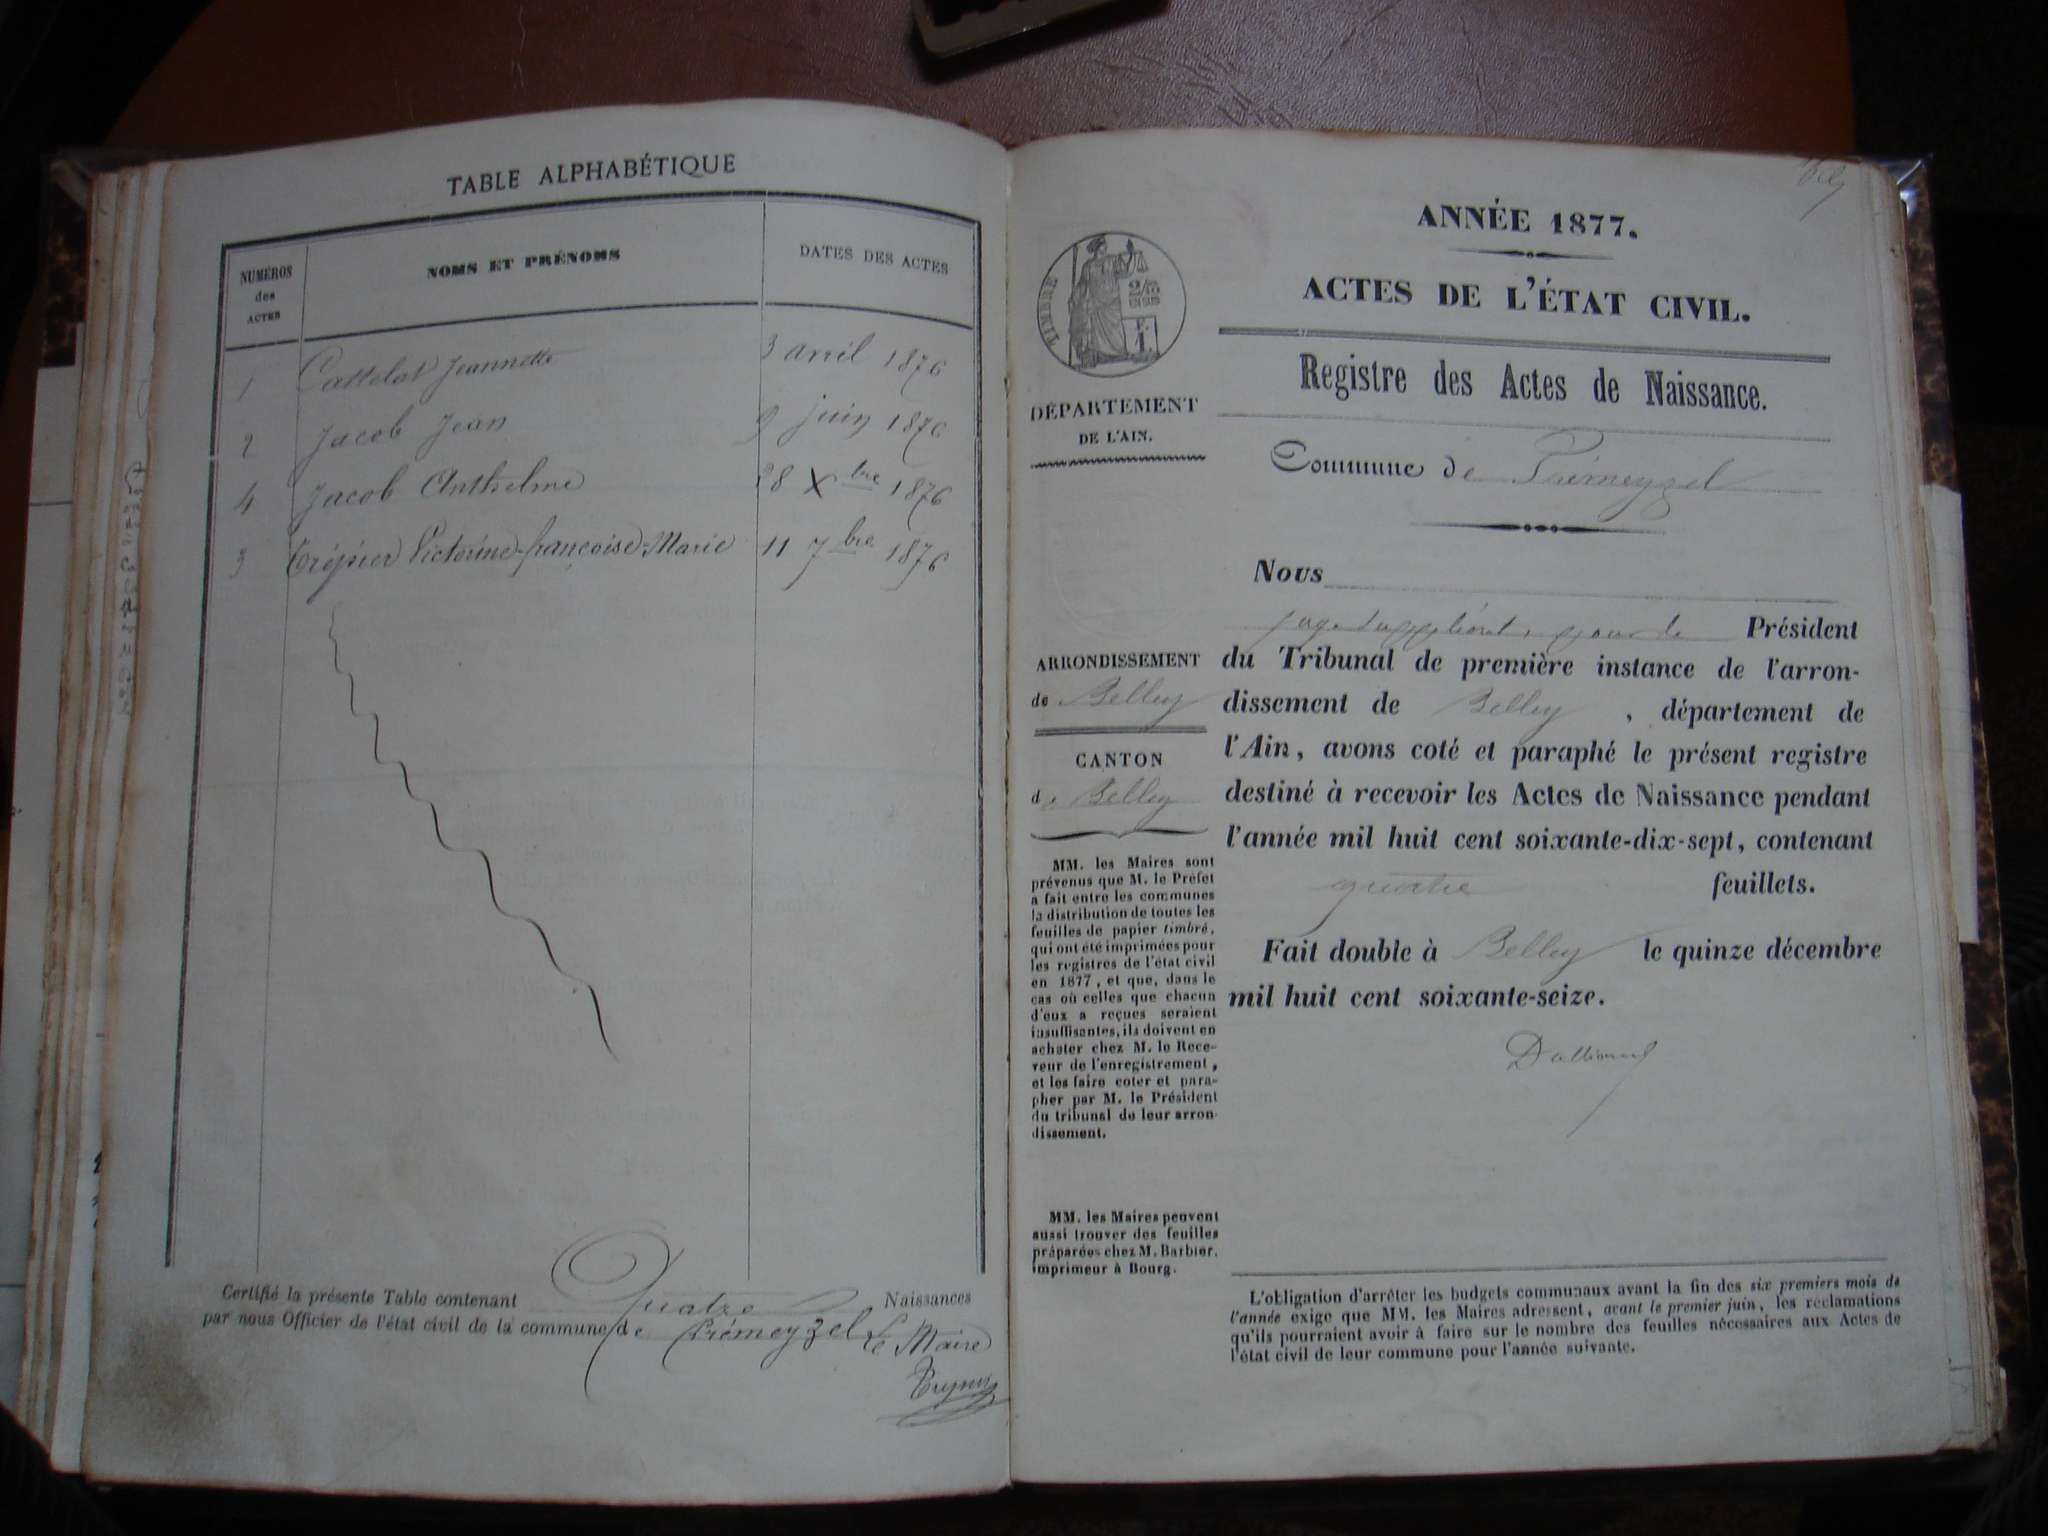 TABLE ALPHABÉTIQUE
NUMÉROS des ACTES
NOMS ET PRÉNOMS
DATES DES ACTES
1 Cattelat Jeannette 3 avril 1876
2 Jacob Jean 9 juin 1876
4 Jacob Anthelme 28 Xbre 1876
3 Trépier Victorine-françoise-Marie 11 7bre 1876
Certifié la présente Table contenant Quatre Naissances
par nous Officier de l'état civil de la commune de Prémeyzel Le Maire
ANNÉE 1877.
ACTES DE L'ÉTAT CIVIL.
Registre des Actes de Naissance.
Commune de Prémeyzel
TIMBRE
DÉPARTEMENT
DE L'AIN.
ARRONDISSEMENT
de Belley
CANTON
de Belley
MM. les Maires sont
prévenus que M. le Préfet
a fait entre les communes
la distribution de toutes les
feuilles de papier timbré,
qui ont été imprimées pour
les registres de l'état civil
en 1877, et que, dans le
cas où celles que chacun
d'eux a reçues seraient
insuffisantes, ils doivent en
acheter chez M. le Rece-
veur de l'enregistrement,
et les faire coter et para-
pher par M. le Président
du tribunal de leur arron-
dissement.
MM. les Maires peuvent
aussi trouver des feuilles
préparées chez M. Barbier,
imprimeur à Bourg.
Nous
juge suppléant, pour le Président
du Tribunal de première instance de l'arron-
dissement de Belley, département de
l'Ain, avons coté et paraphé le présent registre
destiné à recevoir les Actes de Naissance pendant
l'année mil huit cent soixante-dix-sept, contenant
quatre feuillets.
Fait double à Belley le quinze décembre
mil huit cent soixante-seize.
L'obligation d'arrêter les budgets communaux avant la fin des six premiers mois de
l'année exige que MM. les Maires adressent, avant le premier juin, les réclamations
qu'ils pourraient avoir à faire sur le nombre des feuilles nécessaires aux Actes de
l'état civil de leur commune pour l'année suivante.